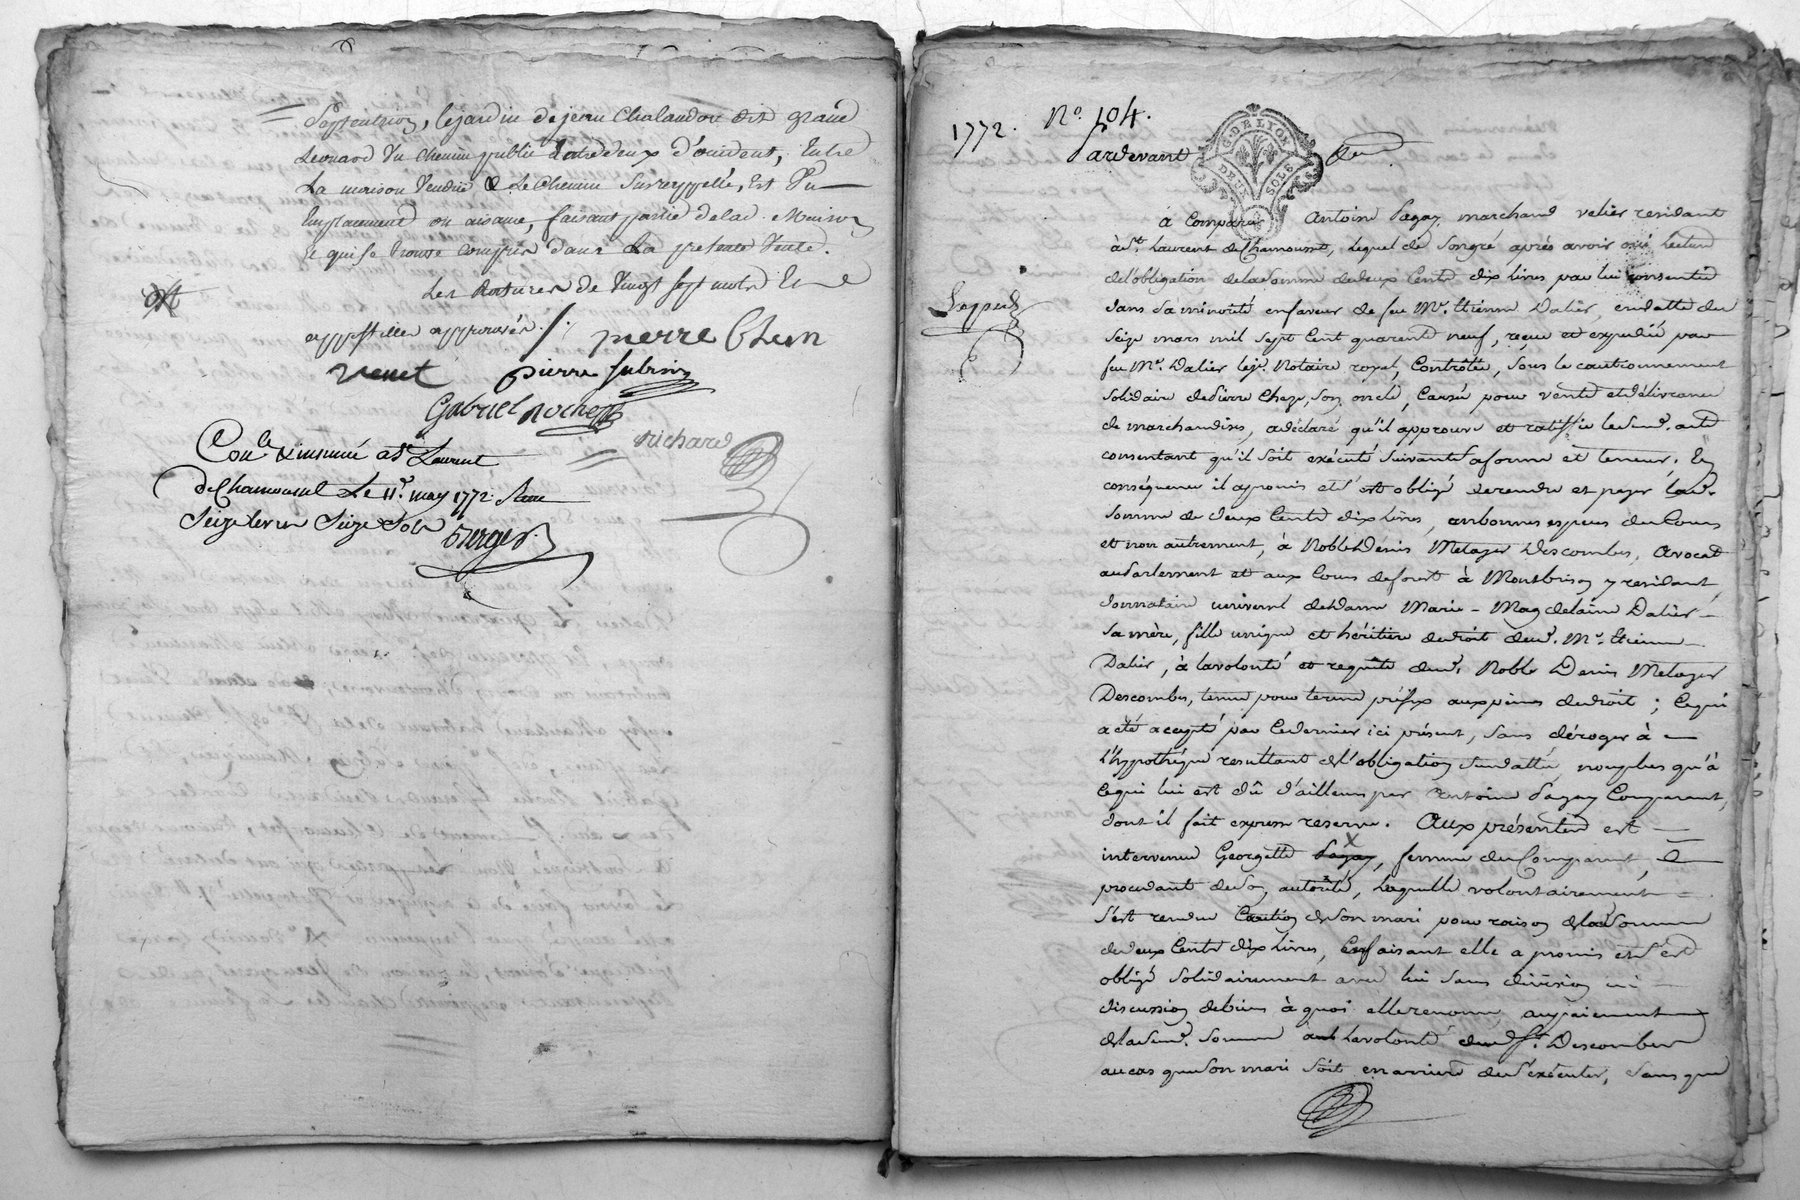 Septentrion, le jardin de jean Chalandon dit grand
Leonard Un chemin public entredeux d'occident, Entre
La maison Vendue & Le Chemin Susrappellé, Est Un
Emplacement ou aisance, faisant partie de lad. Maison
et qui se trouve compris dans La presente Vente.
Les Ratures de Vingt sept mots Et
appostilles approuvés ./.
pierre Chern
Venet pierre subrin
Gabriel Rochet
richard
Con.lé & insinué a St Laurent
de Chamousset Le 11.e may 1772. Recu
Seize livres Seize Sols
Berger
1772. No. 104.
G. DE LYON
DEUX SOLS
Pardevant
à Comparu Antoine Pagay marchand velier residant
à St. Laurent de Chamousset, lequel de Songré après avoir oui lecture
de l'obligation de la somme de deux Cents dix livres par lui consentie
dans Sa minorité en faveur de feu Me. Etienne Dalier, en datte du
Seize mars mil Sept Cent quarente neuf, reçue et expediée par
feu Me. Dalier Notaire royal, Contrôllée, sous le cautionnement
Solidaire de Pierre Cheze, Son oncle, Causée pour vente et délivrance
de marchandises, a déclaré qu'il approuve et ratiffie le Susd. acte
consentant qu'il soit exécuté suivant Sa forme et teneur. En
conséquence il a promis et s'est obligé de rendre et payer lad.
Somme de deux Cents dix livres, en bonnes especes du Cours
et non autrement, à Noble Denis Metayer Descombes, Avocat
au Parlement et aux Cours de forest à Montbrison y residant,
donnataire universel de dame Marie-Magdelaine Dalier
Sa mère, fille unique et héritiere de droit dud. Me. Etienne
Dalier, à la volonté et requête dud. Noble Denis Metayer
Descombes, tenue pour terme préfix aux peines de droit ; Ce qui
a été accepté par Ce dernier ici présent, Sans déroger à
l'hypothéque resultant de l'obligation Susdattée, non plus qu'à
Ce qui lui est dû d'ailleurs par Antoine Pagay Comparant,
dont il fait expresse reserve. Aux présentes est
intervenue Georgette Pagay, femme du Comparant, &
procedant de Son autorité, Laquelle volontairement
S'est rendue Caution de Son mari pour raison de lad. Somme
de deux Cents dix livres, Ce faisant elle a promis et S'est
obligé Solidairement avec lui Sans division ni
discussion de biens à quoi elle renonce, au paiement
de la Susd. Somme à la volonté dud. Sr. Descombes
au cas que Son mari Soit en arriere de S'exécuter, Sans que